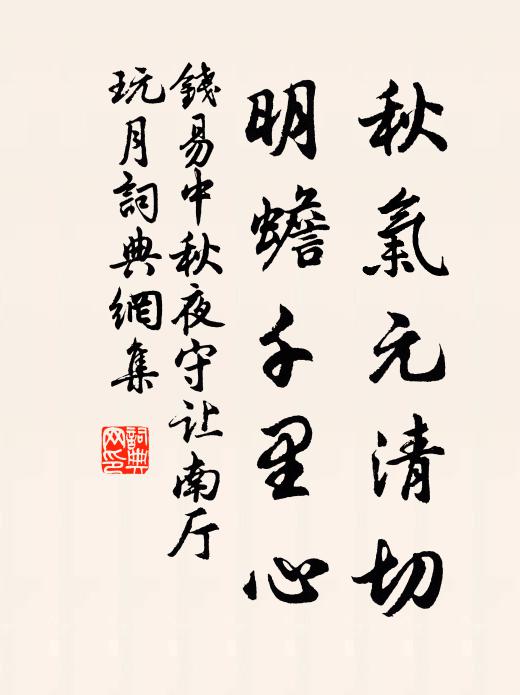 秋氣元清切
明蟾千里心
錢易中秋夜守让南厅
玩月詞典網集
詞典网印